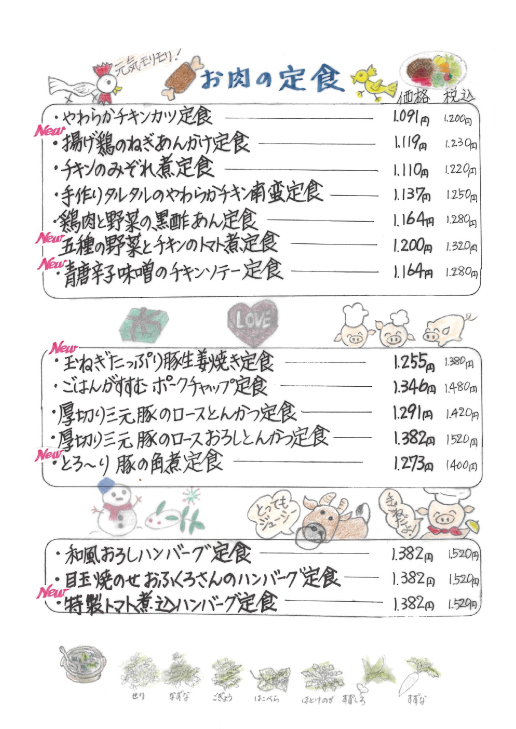 元気モリモリ!
お肉の定食
価格 税込
・やわらかチキンカツ定食 1.091円 1.200円
New
・揚げ鶏のねぎあんかけ定食 1.119円 1.230円
・チキンのみぞれ煮定食 1.110円 1.220円
・手作りタルタルのやわらかチキン南蛮定食 1.137円 1250円
・鶏肉と野菜の黒酢あん定食 1.164円 1.280円
New
・五種の野菜とチキンのトマト煮定食 1.200円 1.320円
New
・青唐辛子味噌のチキンソテー定食 1.164円 1.280円
LOVE
New
・玉ねぎたっぷり豚生姜焼き定食 1.255円 1.380円
・ごはんがすすむ ポークチャップ定食 1.346円 1.480円
・厚切り三元豚のロースとんかつ定食 1.291円 1.420円
・厚切り三元豚のロースおろしとんかつ定食 1.382円 1520円
New
・とろ〜り 豚の角煮定食 1.273円 1400円
とってもジューシー
・和風おろしハンバーグ定食 1.382円 1.520円
・目玉焼のせ おふくろさんのハンバーグ定食 1.382円 1.520円
New
・特製トマト煮込ハンバーグ定食 1.382円 1.520円
せり なずな ごぎょう はこべら ほとけのざ すずしろ すずな